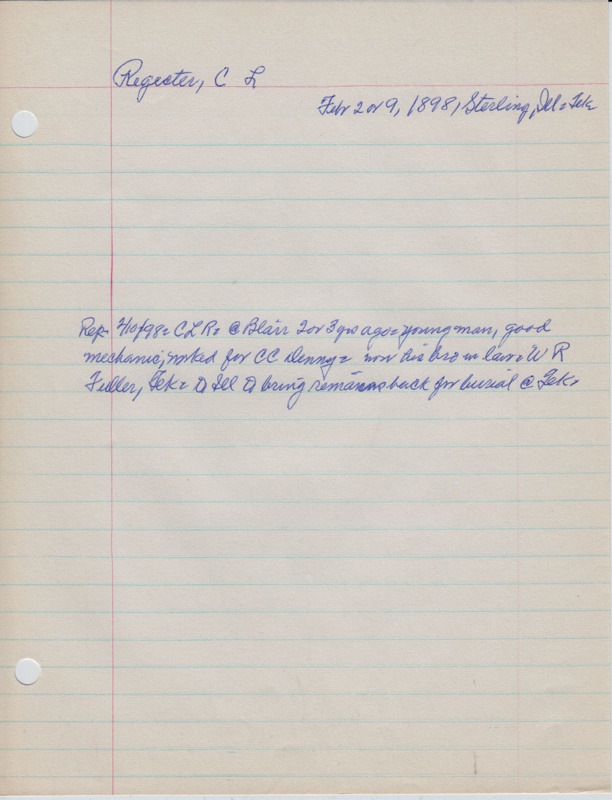 Regester, C L
Febr 2 or 9, 1898, Sterling, Ill = Tek
Rep= 2/10/98= C L R= @ Blair 2 or 3 yrs ago= young man, good
mechanic, worked for C C Denny= now his bro in law= W R
Fuller, Tek= Ill bring remains back for burial @ Tek=